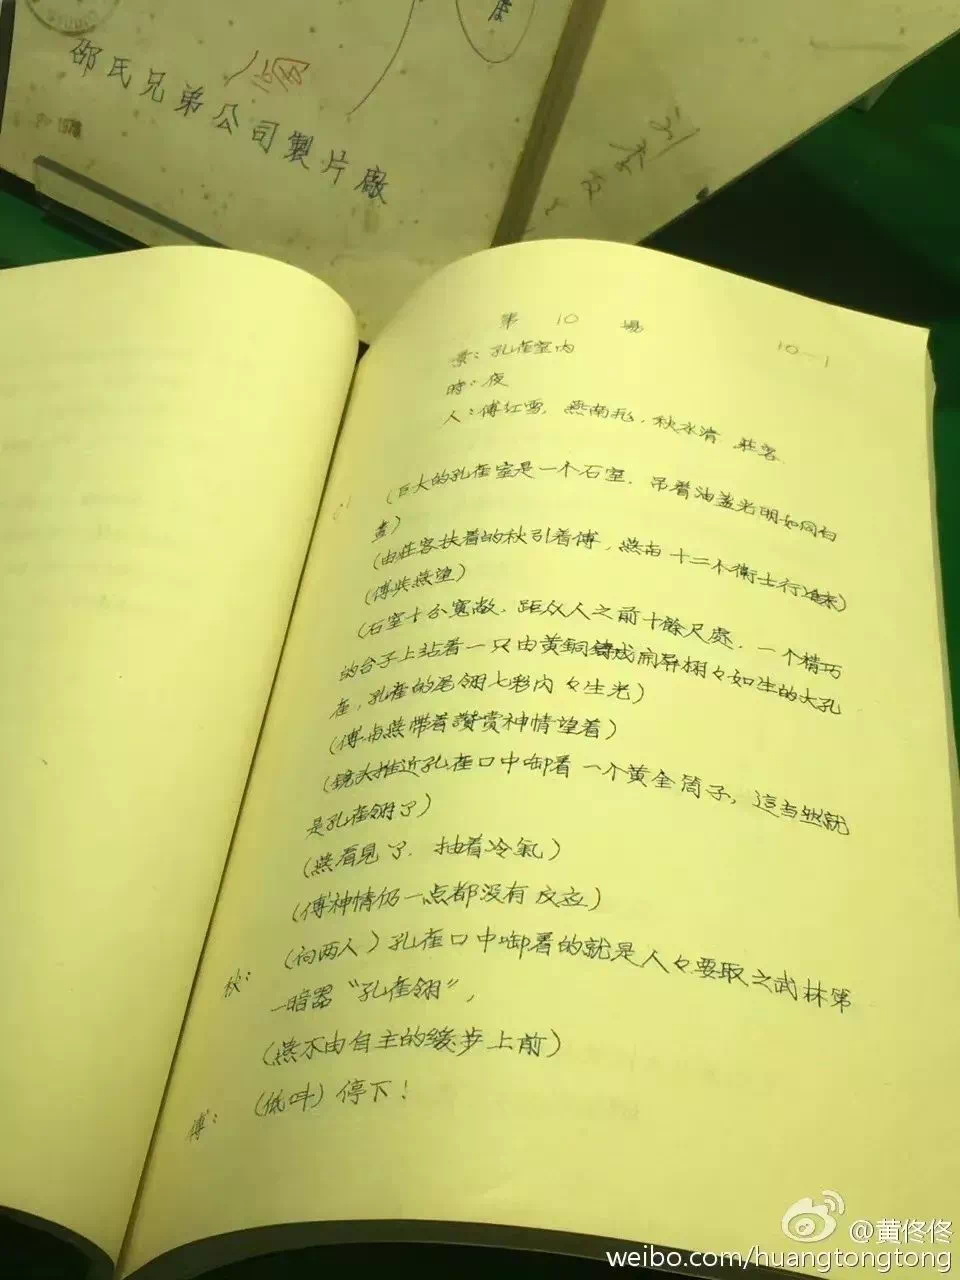 邵氏兄弟公司製片廠
1978
第 10 場
10-1
景：孔雀室内
時：夜
人：傅红雪，燕南飛，秋水清，莊客
（巨大的孔雀室是一个石室，吊着油盞光明如同白
晝）
（由莊客扶着的秋引着傅，燕由十二个衛士行進來）
（傅與燕望）
（石室十分寬敞，距众人之前十餘尺處，一个精巧
的台子上站着一只由黄銅鑄成開屏栩々如生的大孔
雀，孔雀的尾翎七彩闪々生光）
（傅與燕帶着讚赏神情望着）
（镜头推近孔雀口中啣着一个黄金筒子，這当然就
是孔雀翎了）
（燕看見了，抽着冷氣）
（傅神情仍一点都没有反应）
秋：（向两人）孔雀口中啣着的就是人々要取之武林第
一暗器“孔雀翎”，
（燕不由自主的缓步上前）
傅：（低叫）停下！
@黄佟佟
weibo.com/huangtongtong